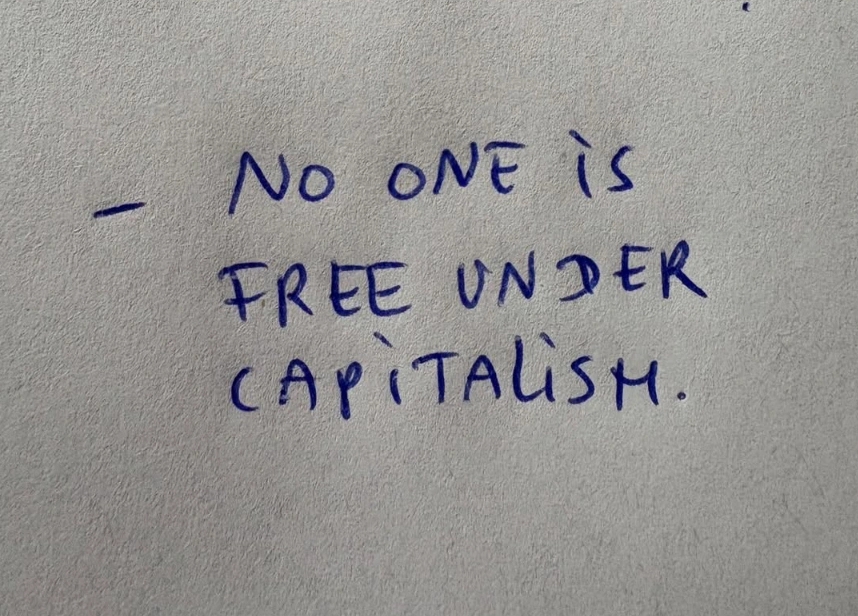 - NO ONE iS
FREE UNDER
CAPiTALiSM.